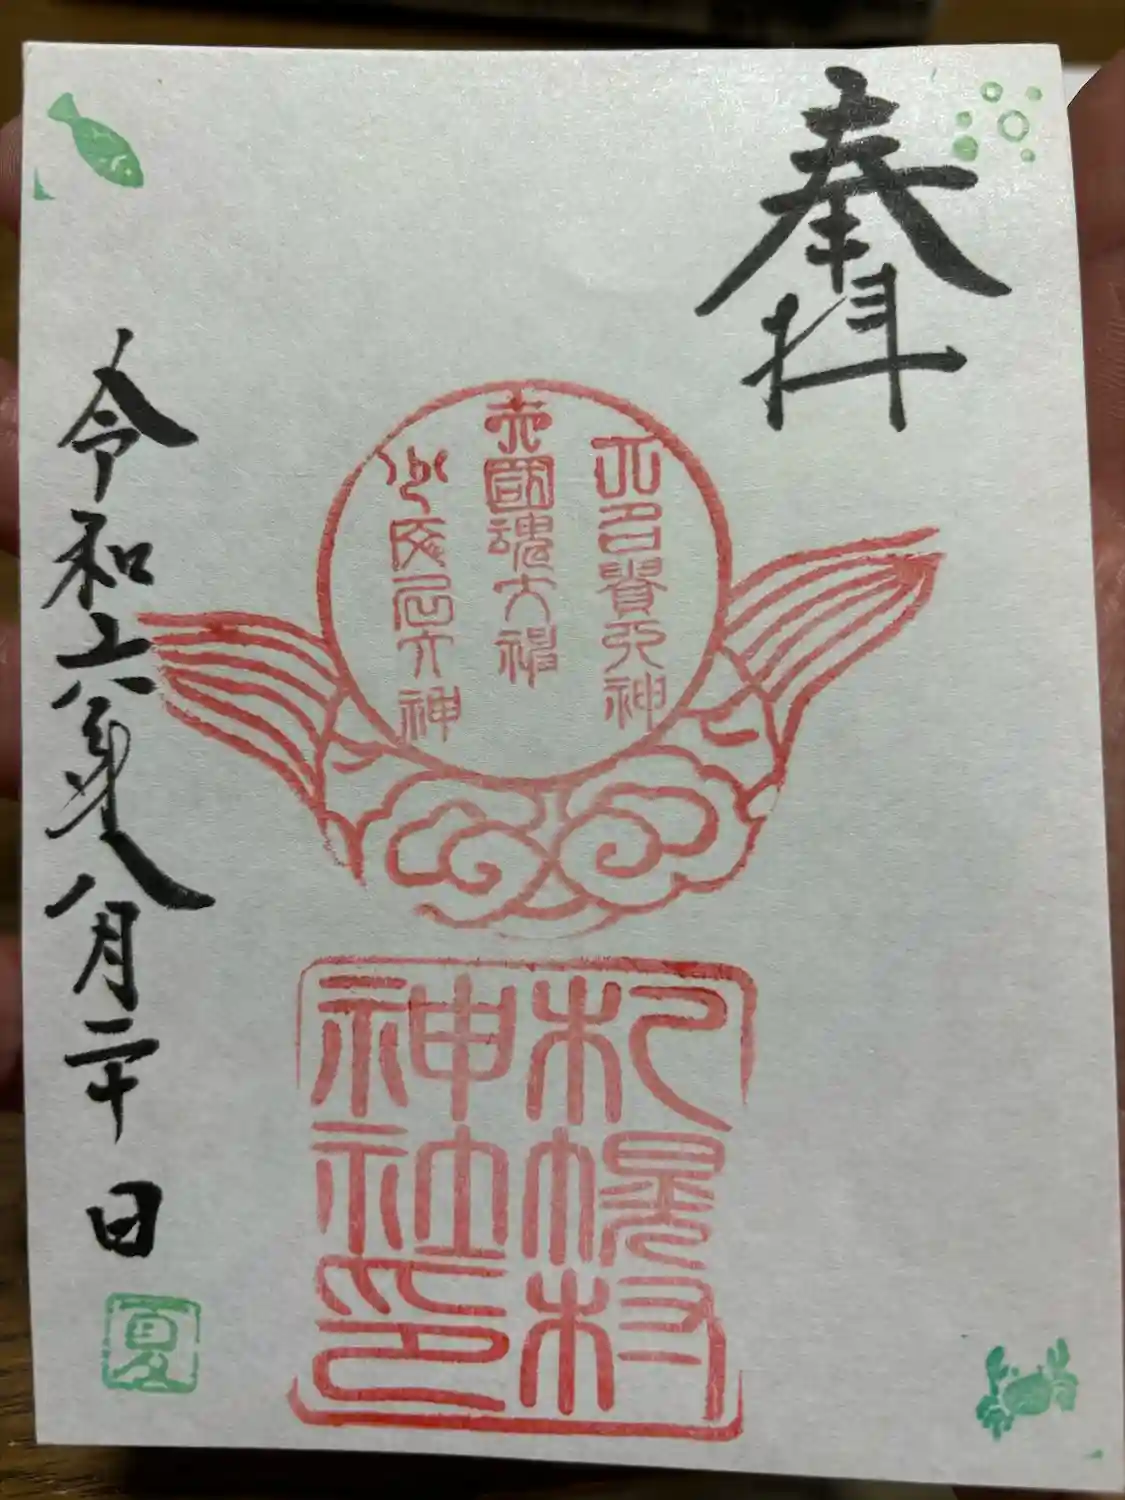 奉拝
大名貴大神
大國魂大神
少彦名大神
札幌村
神社印
令和六年八月二十日
夏